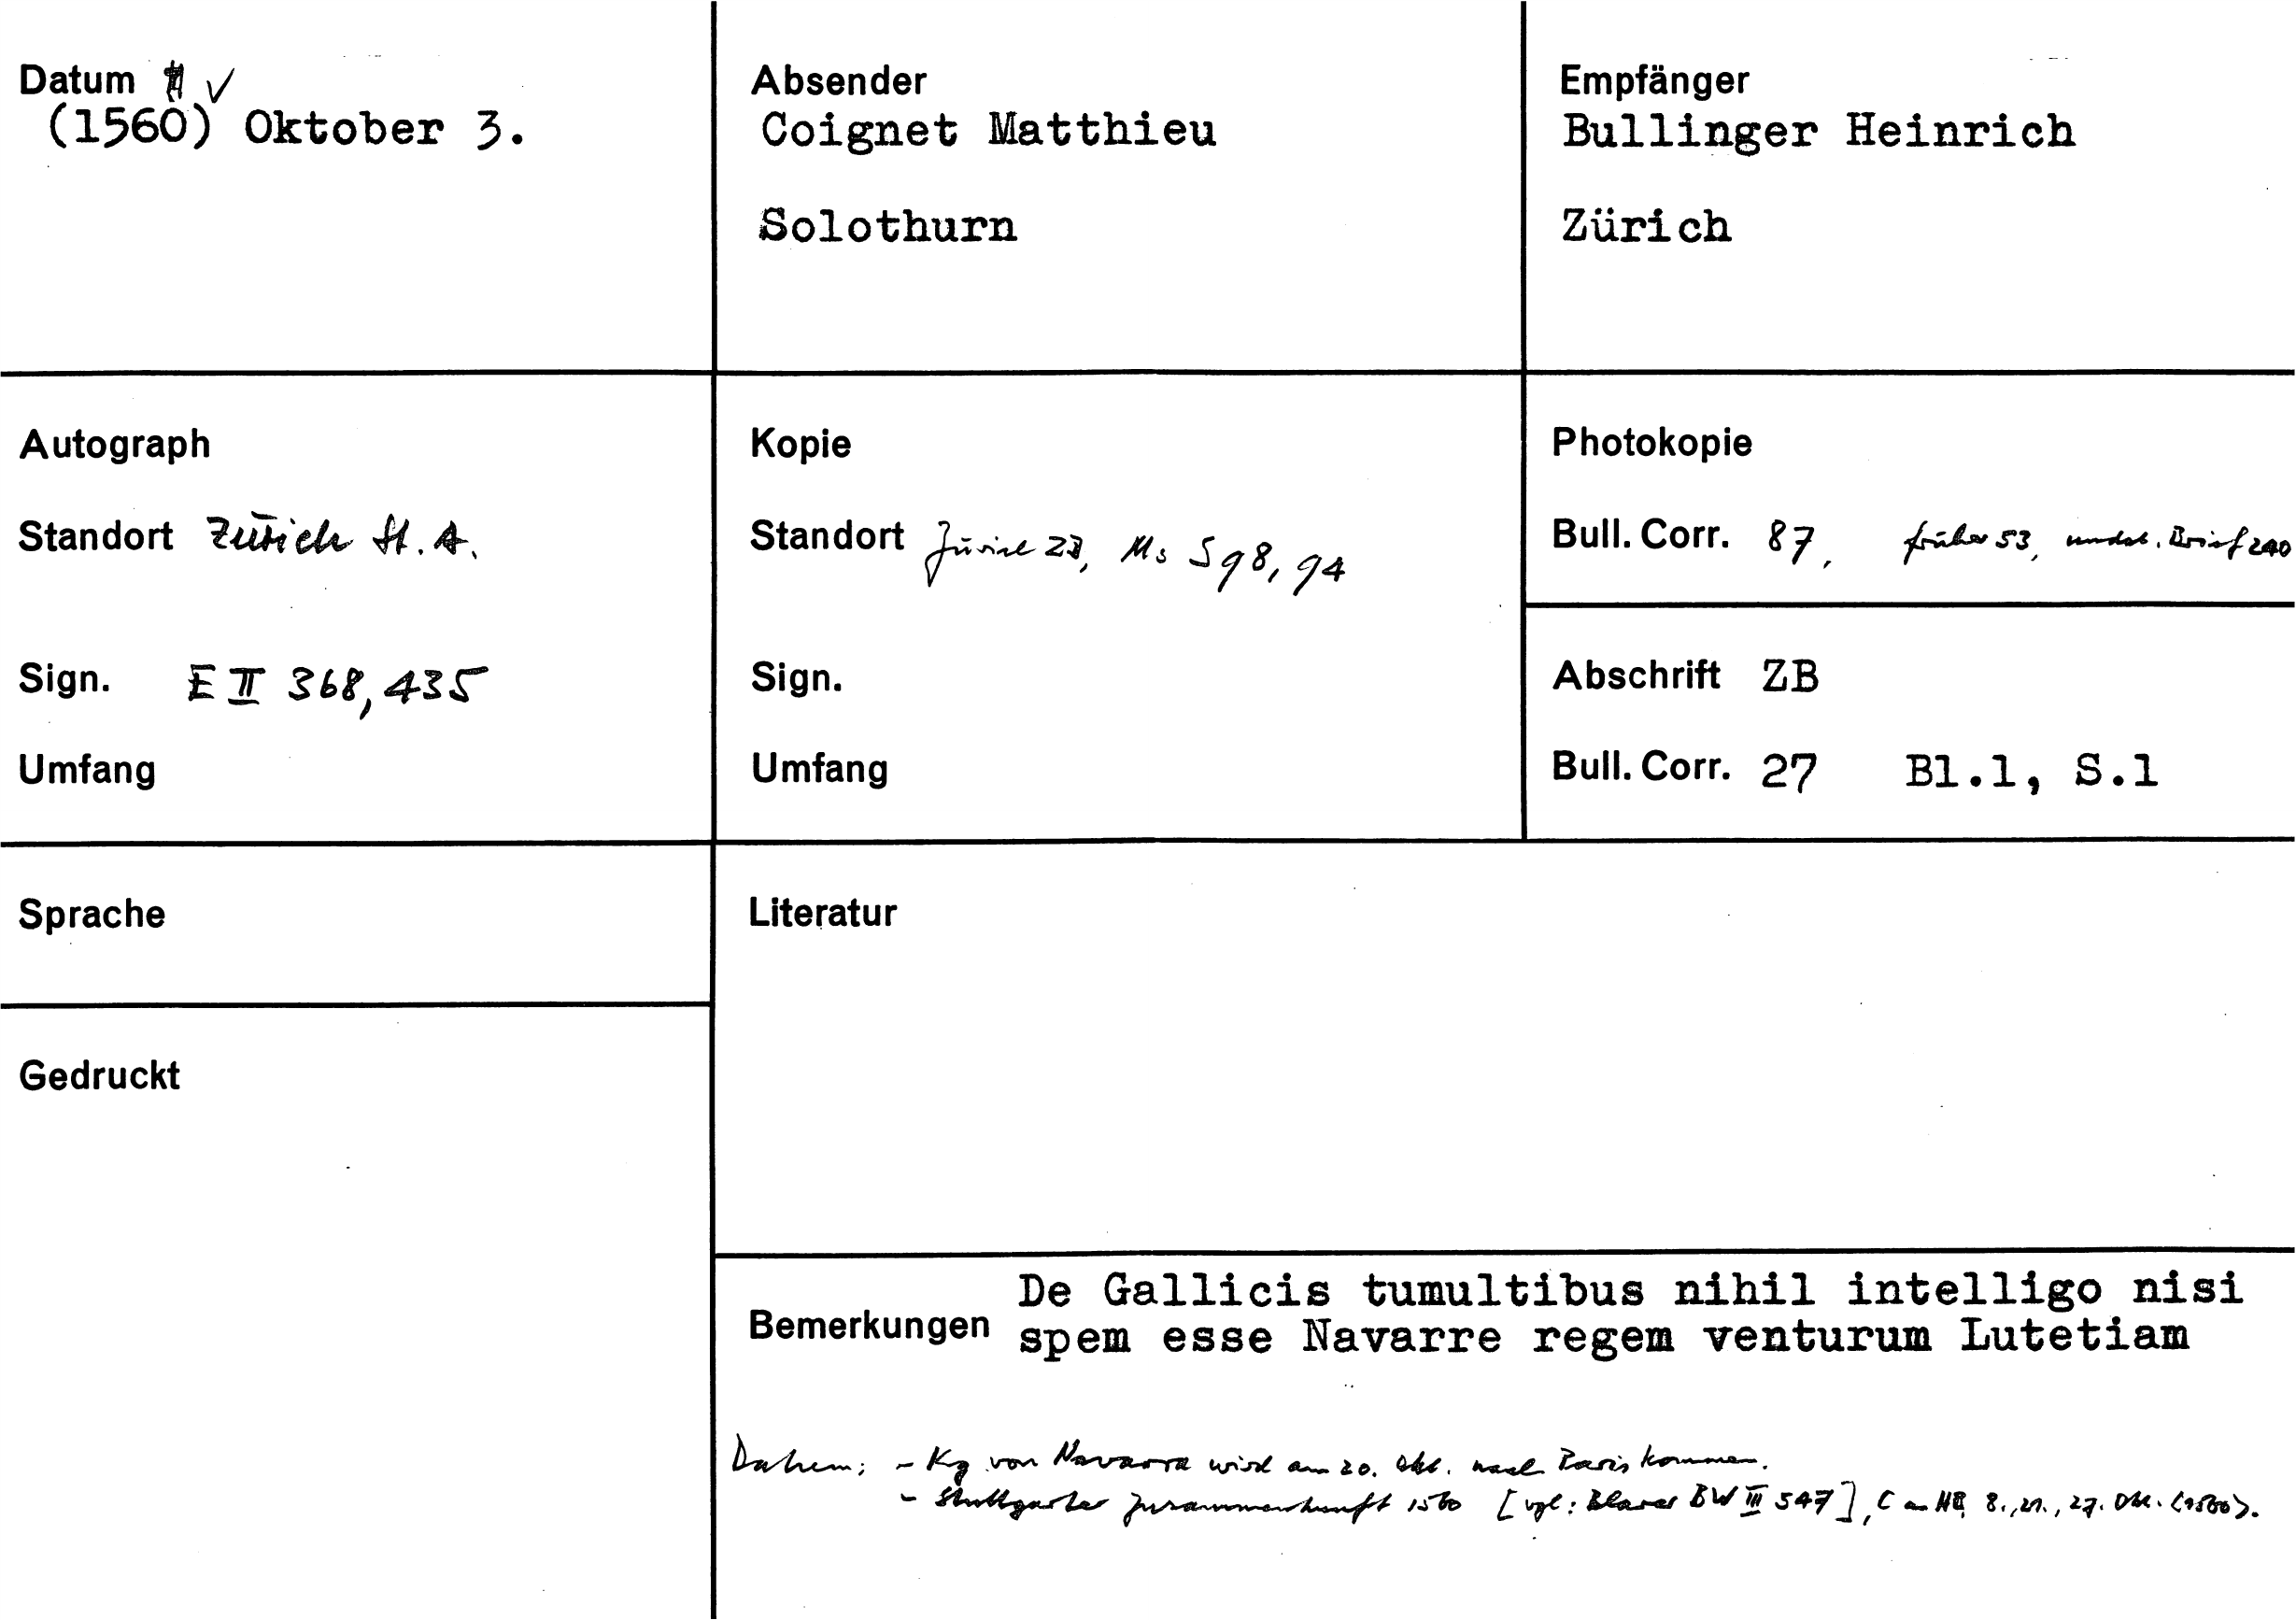 Datum ✓
(1560) Oktober 3.
Absender
Coignet Matthieu
Solothurn
Empfänger
Bullinger Heinrich
Zürich
Autograph
Standort Zürich St. A.
Sign. E II 368, 435
Umfang
Kopie
Standort Zürich ZB, Ms S 98, 94
Sign.
Umfang
Photokopie
Bull. Corr. 87, früher 53, undat. Brief 240
Abschrift ZB
Bull. Corr. 27 Bl.1, S.1
Sprache
Gedruckt
Literatur
Bemerkungen De Gallicis tumultibus nihil intelligo nisi
spem esse Navarre regem venturum Lutetiam
Datum: - Kg von Navarra wird am 20. Okt. nach Paris kommen.
- Stuttgarter Zusammenkunft 1560 [vgl: Blarer BW III 547], C an HB, 8., 21., 27. Okt. (1560).